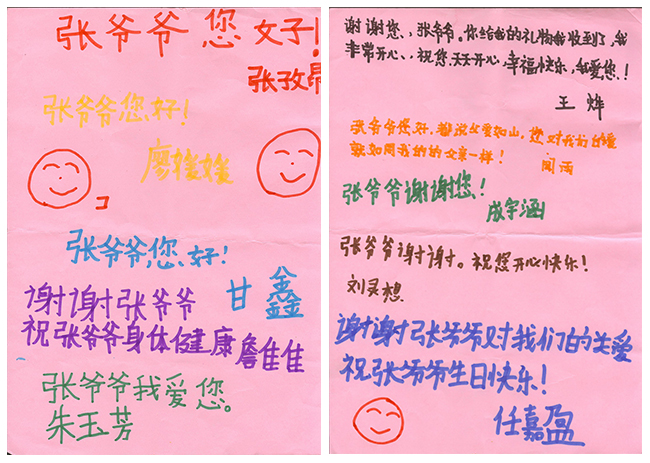 张爷爷您好!
张孜
张爷爷您好!
廖媛媛
张爷爷,您,好!
甘鑫
谢谢张爷爷
祝张爷爷身体健康 詹佳佳
张爷爷我爱您。
朱玉芳
谢谢您、、张爷爷。你给我的礼物我收到了,我
非常开心、、祝您天天开心,幸福快乐,我爱您、!
王烨
张爷爷您好,都说父爱如山,您对我们的爱
就如同我的的父亲一样! 闻雨
张爷爷谢谢您!
成宇涵
张爷爷谢谢。祝您开心快乐!
刘灵想
谢谢张爷爷对我们的关爱
祝张爷爷生日快乐!
任嘉盈